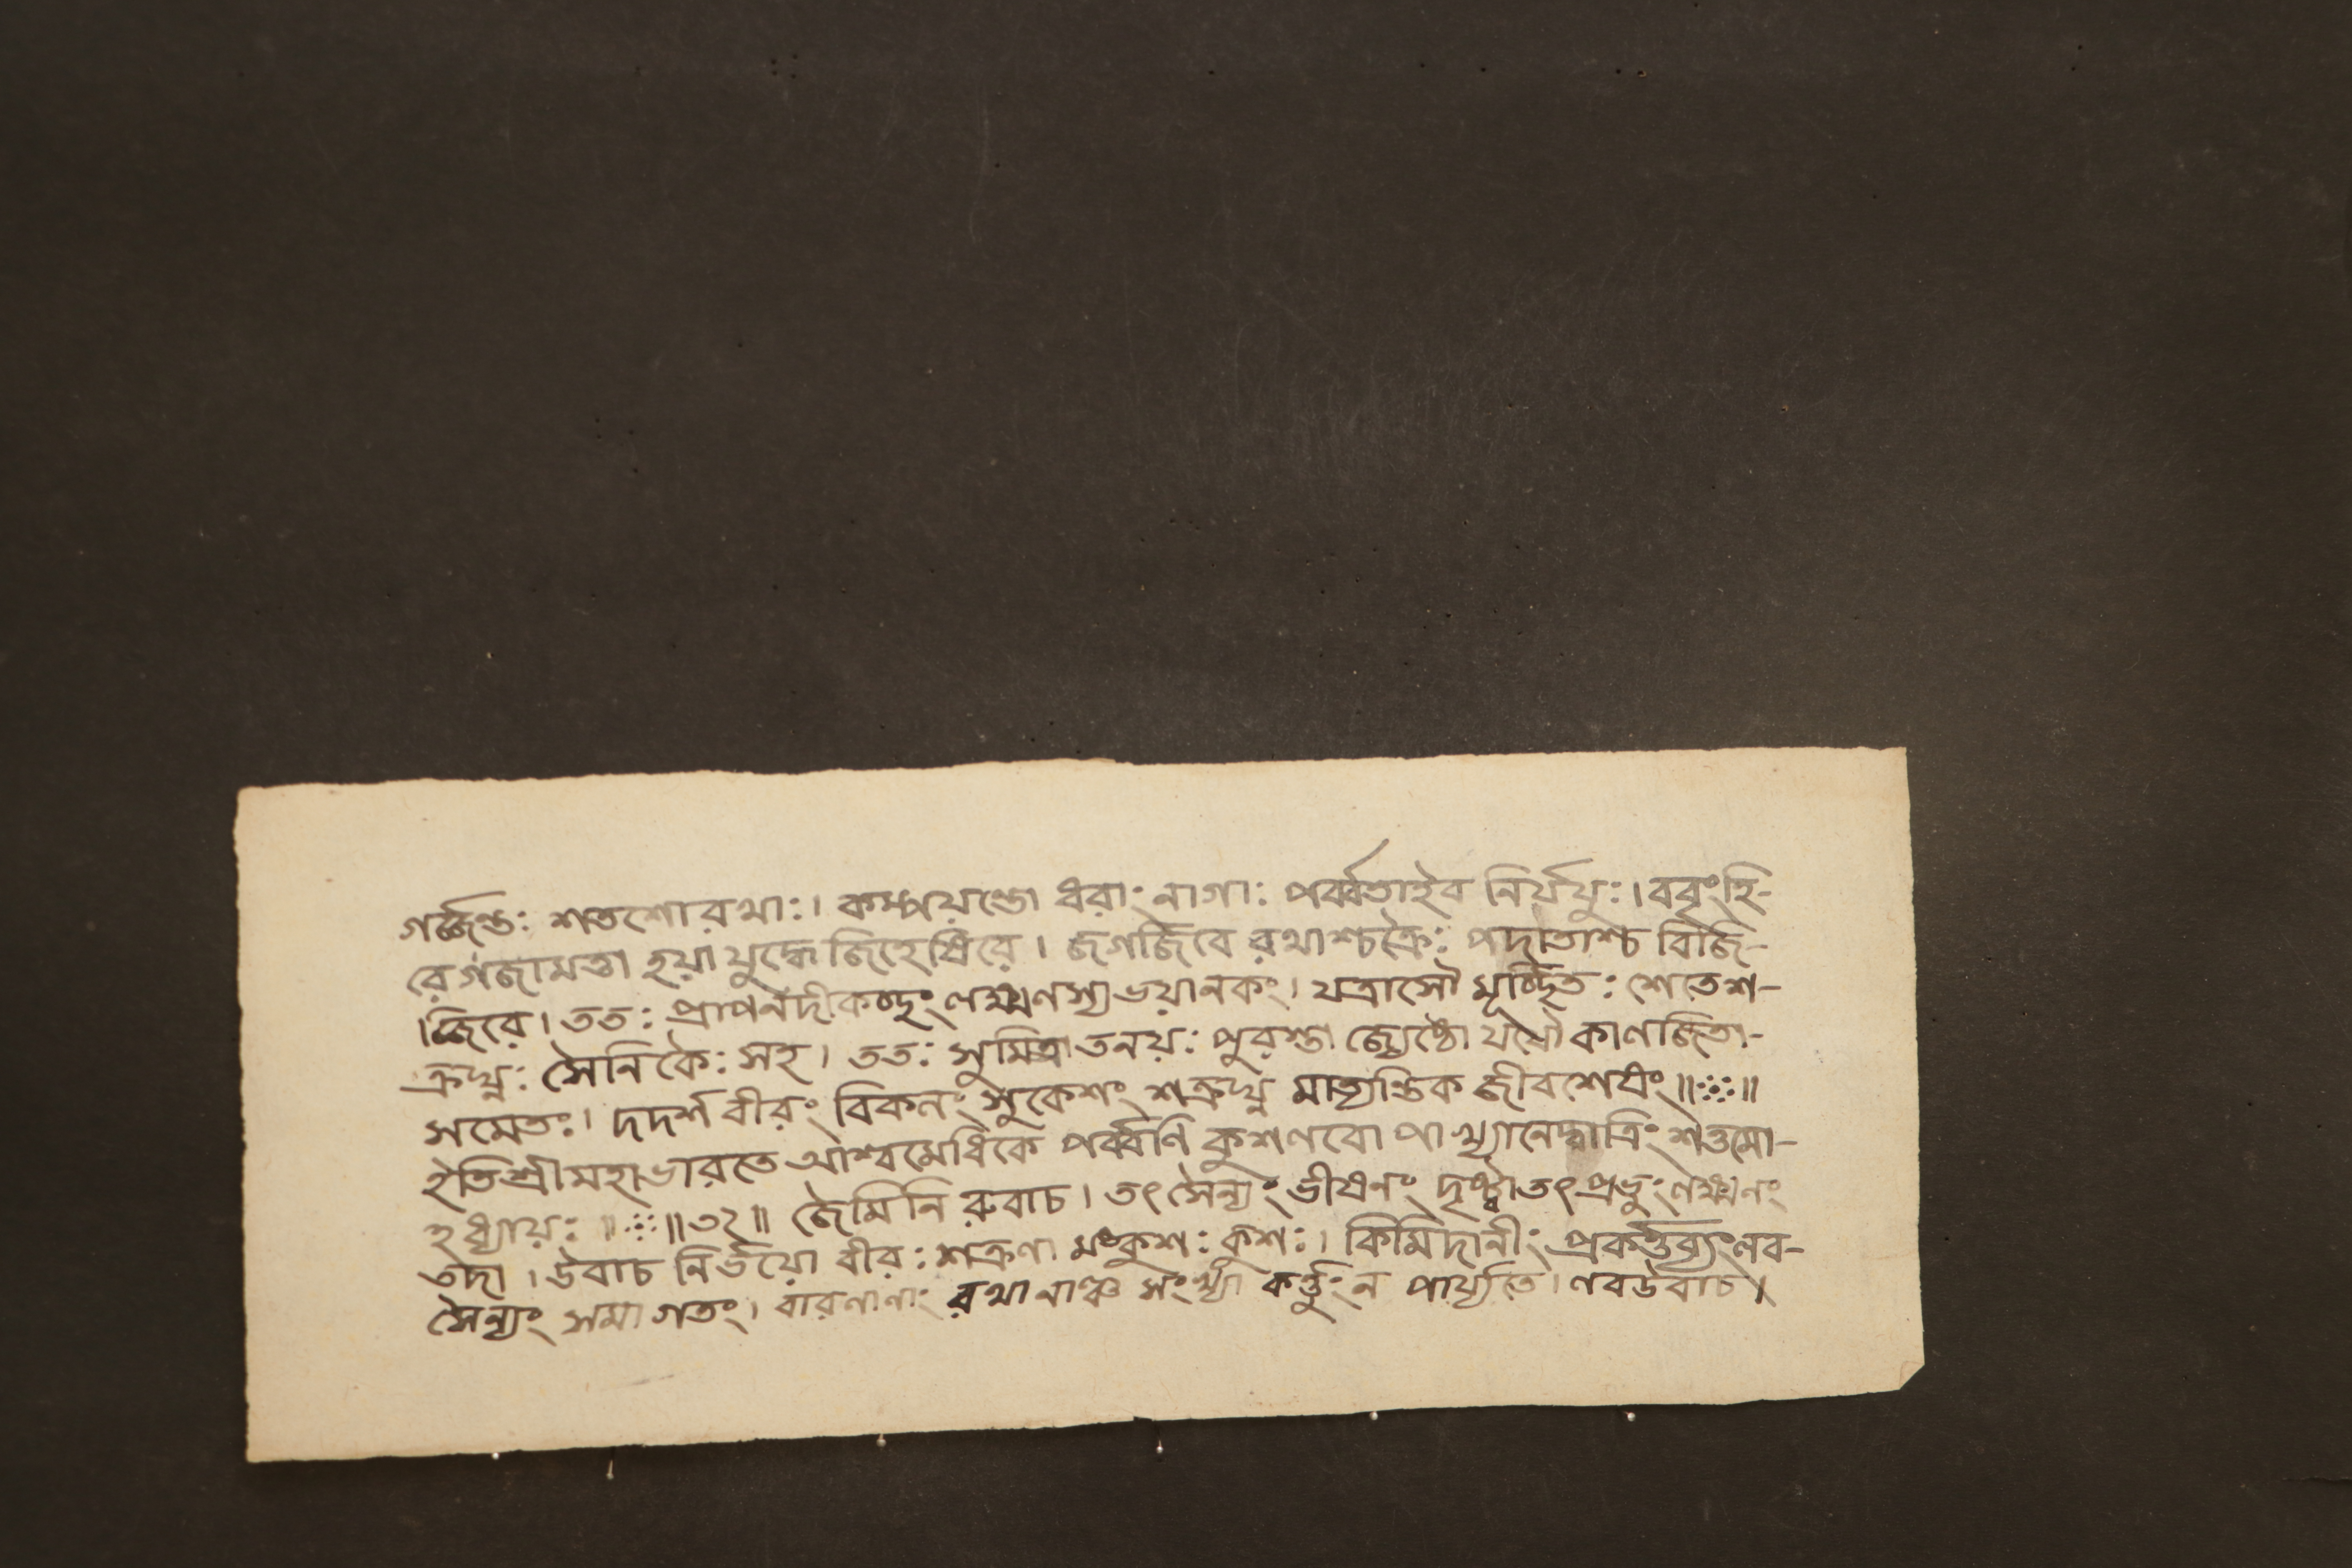 গর্জ্জন্তঃ শতশোরথাঃ। কম্পয়ন্তো ধরাং নাগাঃ পর্ব্বতাইব নির্যযুঃ। ববৃংহি-
রে গজামত্তা হয়া যুদ্ধে জিহেষিরে। জগর্জিরে রথাশ্চক্রৈঃ পদাতাশ্চ বিজি-
।জ্ঝিরে। ততঃ প্রাপনদীকচ্ছং লক্ষ্মণস্যভয়ানকং। যত্রাসৌ মূর্চ্ছিতঃ শেতেশ-
ত্রুঘ্নঃ সৈনিকৈঃ সহ। ততঃ সুমিত্রাতনয়ঃ পুরস্তা জ্জ্যেষ্ঠো যযৌ কালজিতা-
সমেতঃ। দদর্শ বীরং বিকলং সুকেশং শত্রুঘ্ন মাত্যন্তিক জীবশেষং॥ঃঃ॥
ইতিশ্রীমহাভারতে আশ্বমেধিকে পর্ব্বণি কুশলবো পাখ্যানেদ্বাত্রিংশত্তমো-
হধ্যায়ঃ ॥ঃঃ॥৩২॥ জৈমিনি রুবাচ। তৎসৈন্যং ভীষণং দৃষ্ট্বাতৎপ্রভুং লক্ষ্মণং
তদা। উবাচ নির্ভয়ো বীরঃ শত্রূণা মংকুশঃ কুশঃ। কিমিদানীং প্রকর্ত্তব্যংলব-
সৈন্যং সমাগতং। বারণানাং রথানাঞ্চ সংখ্যা কর্ত্তুং ন পার্য্যতে। লবউবাচ।